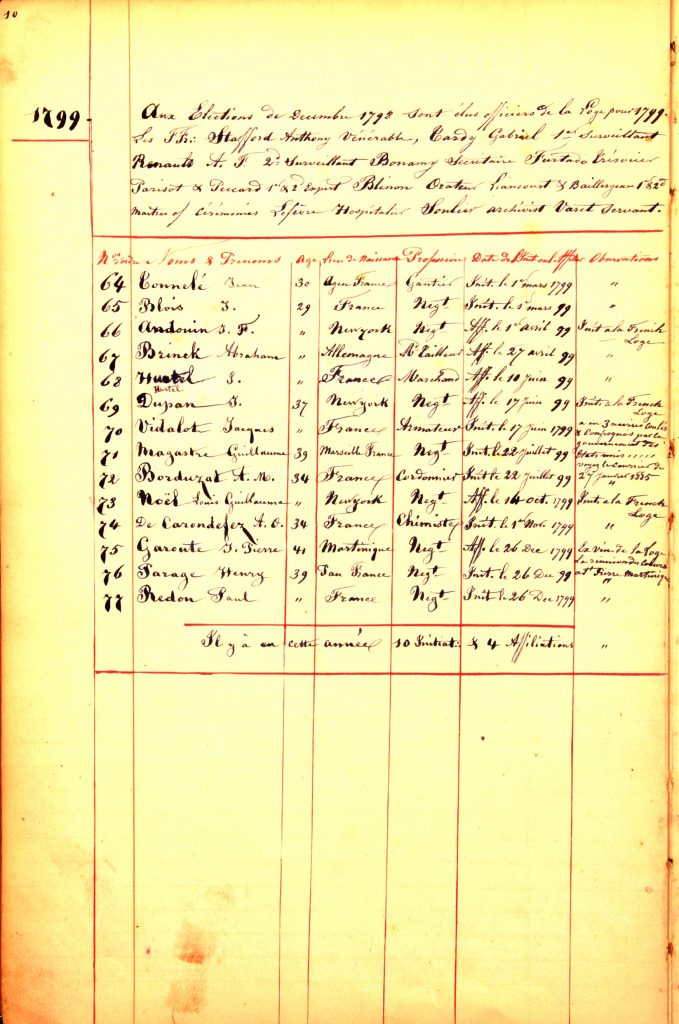 10
1799
Aux Elections de Decembre 1798 sont élus officiers de la Loge pour 1799.
Les FF∴ Stafford Anthony Vénérable, Cardy Gabriel 1er Surveillant
Renault A. F. 2d Surveillant Bonamy Secretaire Furtado Trésorier
Parisot & Piccard 1er & 2d Expert Blénon Orateur Liancourt & Baillergeau 1er & 2nd
Maitres of Cérémonies Lefèvre Hospitalier Soulier archivist Varet Servant.
Nos d'ordre Noms & Prenoms Age Lieu de Naissance Profession Date de l'Init. ou Affil. Observations
64 Connelé Jean 30 Agen France Gantier Init. le 1er mars 1799 "
65 Blois J. 29 France Negt Init. le 1er mars 99 "
66 Andouin J. F. " Newyork Negt Aff. le 1er avril 99 Init à la French Loge
67 Brinck Abraham " Allemagne Md Tailleur Aff. le 27 avril 99 "
68 Hustel J. " France Marchand Aff. le 10 juin 99 "
Hustel
69 Dupan J. 37 Newyork Negt Aff. le 17 juin 99 Init. à la French Loge
70 Vidalot Jacques " France Armateur Init. le 17 juin 1799 a eu 3 navires coulés
71 Magastre Guillaume 39 Marseille France Negt Init. le 22 juillet 99 & confisqués par le gouvernement des Etats unis
72 Borduzat A. M. 34 France Cordonnier Init le 22 juillet 99 voyez le Courrier du 27 janvier 1885
73 Noël Louis Guillaume " Newyork Negt Aff. le 14 Oct. 1799 Init à la French Loge
74 De Carondelez A. O. 34 France Chimiste Init le 1er Nov. 1799 "
75 Garoute J. Pierre 41 Martinique Negt Aff. le 26 Dec 1799 Ex Vén. de la Loge
76 Parage Henry 39 Pau France Negt Init. le 26 Dec 99 La réunion des Coeurs a St Pierre Martinique
77 Redon Paul " France Negt Init le 26 Dec 1799 "
Il y à eu cette année 10 Initiat. & 4 Affiliations "